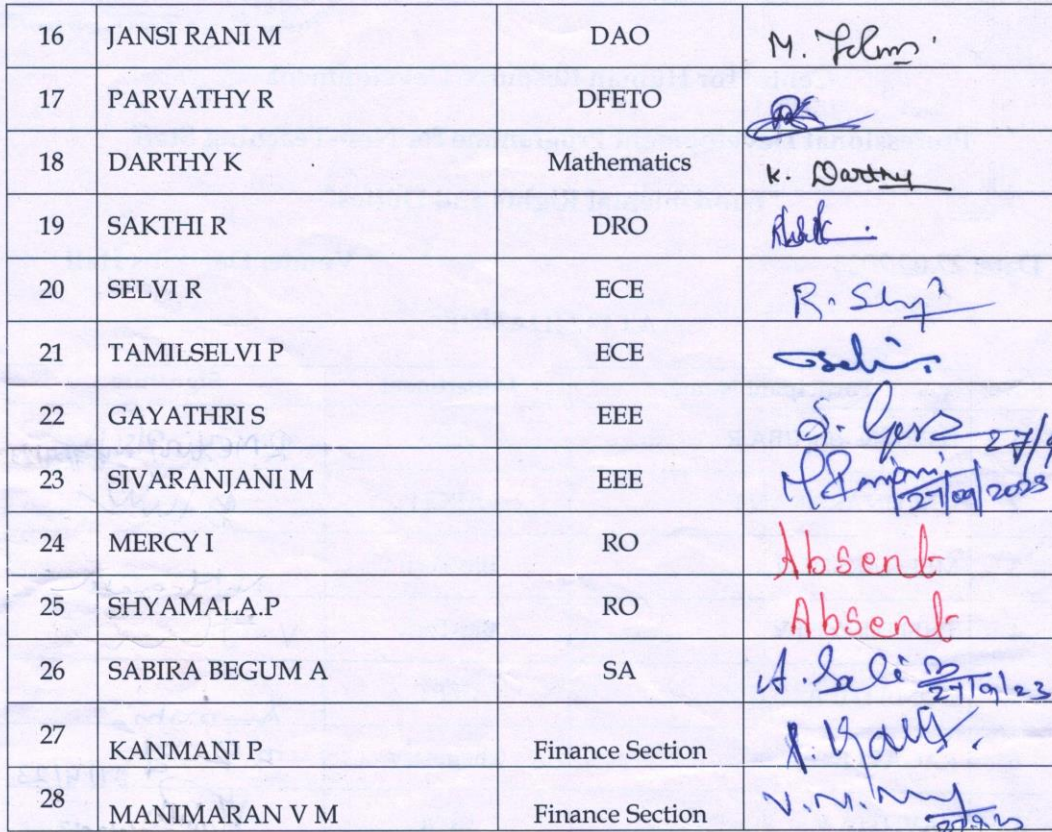 16 JANSI RANI M DAO M.
17 PARVATHY R DFETO
18 DARTHY K Mathematics K. Darthy
19 SAKTHI R DRO
20 SELVI R ECE R.
21 TAMILSELVI P ECE
22 GAYATHRI S EEE S. 27/9
23 SIVARANJANI M EEE 27/09/2023
24 MERCY I RO Absent
25 SHYAMALA.P RO Absent
26 SABIRA BEGUM A SA A. 27/9/23
27 KANMANI P Finance Section P.
28 MANIMARAN V M Finance Section V.M.